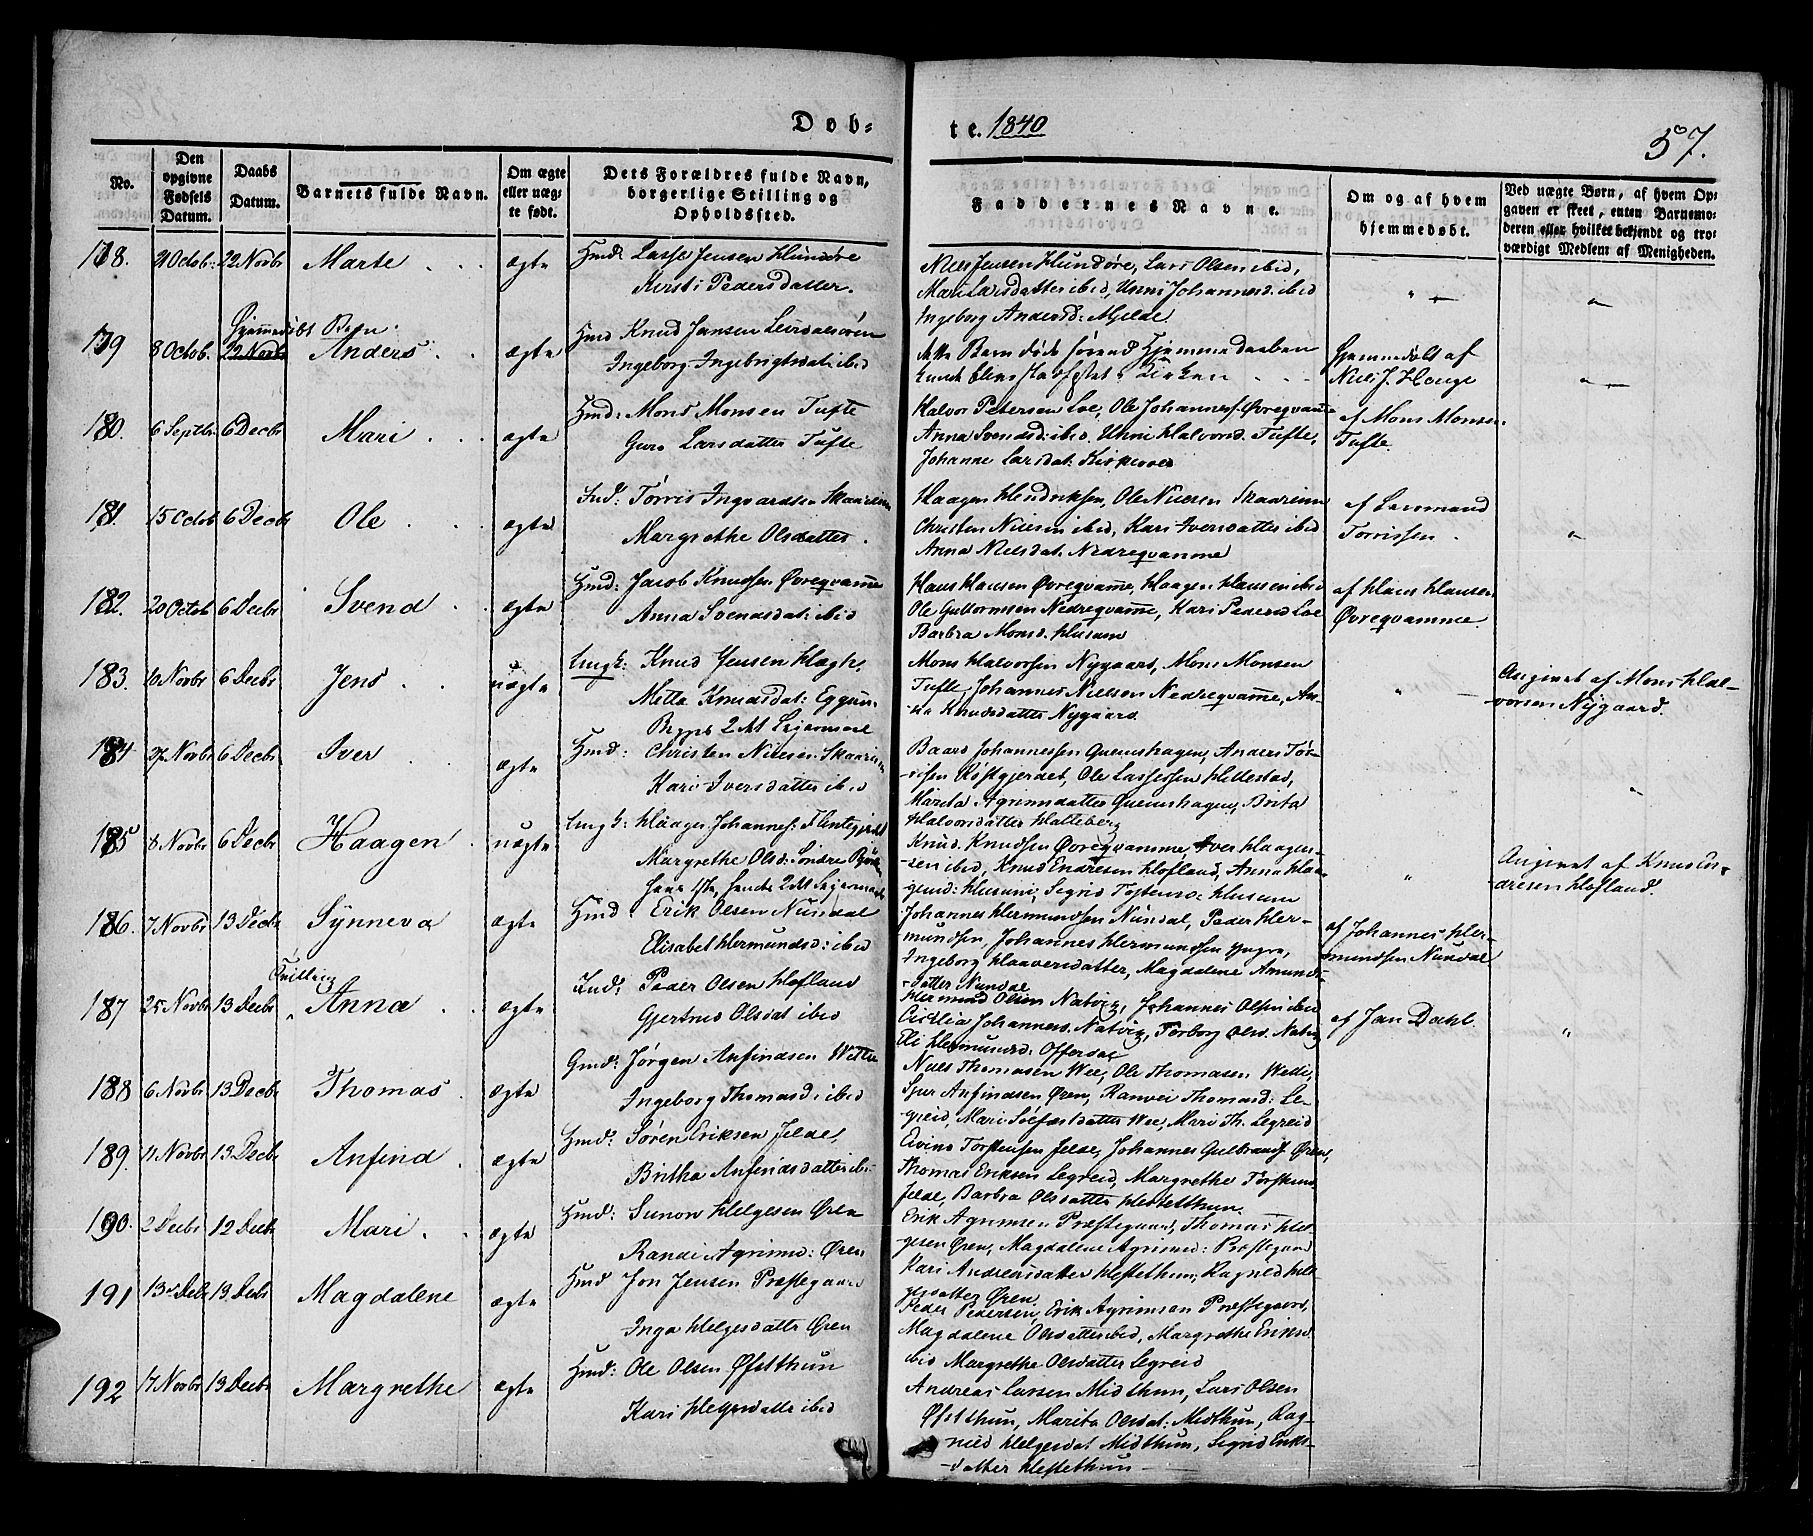 Døb=
te. 1840
57.
No.
Den opgivne Fødsels Datum.
Daabs Datum.
Barnets fulde Navn.
Om ægte eller uægte født.
Dets Forældres fulde Navn, borgerlige Stilling og Opholdssted.
Faddernes Navne.
Om og af hvem hjemmedøbt.
Ved uægte Børn, af hvem Opgaven er skeet, enten Barnemoderen eller hvilket bekjendt og troværdigt Medlem af Menigheden.
178. 21 Octob: 22 Novbr Marte ægte Hmd: Lasse Jensen Hundøre
Kirsti Pedersdatter.
Niels Jensen Hundøre, Lars Olsen ibid,
Mari Larsdatter ibid, Unni Johannesd: ibid
Ingeborg Andersd: Mjelde
179 8 Octob. 22 Novbr Hjemmedøbt Barn. Anders ægte Hmd Knud Jansen Leirdalsøren
Ingeborg Ingebrigtsdat: ibid
dette Barn døde førend Hjemmedaaben
kunde blive stadfæstet i Kirken
Hjemmedøbt af
Niels J. Hauge
180. 6 Septbr 6 Decbr Mari ægte Hmd: Mons Monsen Tufte
Guro Larsdatter Tufte
Halvor Petersen Loe, Ole Johannes: Øvreqvamme
Anna Svendsd: ibid, Unni Halvorsd. Tufte,
Johanne Larsdat:
af Mons Monsen
Tufte.
181. 15 Octob 6 Decbr Ole ægte Ind: Torris Ingvardsen Skaareim
Margrethe Olsdatter.
Haagen Hendriksen, Ole Nielsen Skaareim
Christen Nielsen ibid, Kari Iversdatter ibid
Anna Nielsdat: Nedreqvamme
af Lensmand
Torrissen.
182. 20 Octob 6 Decbr Svend ægte Hmd: Jacob Knudsen Øvreqvamme
Anna Svendsdat: ibid
Hans Hansen Øvreqvamme, Haagen Hansen ibid
Ole Guttormsen Nedreqvamme, Kari Pedersd Loe
Barbra Monsd. Husum
af Hans Hansen
Øvreqvamme.
183. 10 Novbr 6 Decbr Jens uægte Ungk: Knud Jensen Hægh,
Metta Knudsdat: Eggum.
Begges 2det Leiermaal
Mons Halvorsen Nygaard, Mons Monsen
Tufte, Johannes Nielsen Nedreqvamme, An-
na Knudsdatter Nygaard.
Angivet af Mons Hal-
vorsen Nygaard.
184 27 Novbr 6 Decbr Iver ægte Hmd: Christen Nielsen Skaareim
Kari Iversdatter ibid
Baard Johannessen Qvemshagen, Anders Tor-
risen Køstgjerdet, Ole Lassessen Hellestad,
Marita Agrimsdatter Qvemshagen, Brita
Halvorsdatter Halteberg
185 8 Novbr 6 Decbr Haagen uægte Ungk: Haagen Johannes: Flintegjerdet
Margrethe Olsd: Søndre
hans 1ste, hendes 2det Leiermaal
Knud Knudsen Øvreqvamme, Iver Haagen-
sen ibid, Knud Endresen Hofland, Anna Haa-
gensd: Husum, Sigrid Tostensd: Husum
Angivet af Knud En-
dresen Hofland.
186. 7 Novbr 13 Decbr Synneva ægte Hmd: Erik Olsen Nundal
Elisabet Hermundsd: ibid
Johannes Hermundsen Nundal, Peder Her-
mundsen, Johannes Hermundsen yngre,
Ingeborg Haaversdatter, Magdalene Amunds-
datter Nundal
af Johannes Her-
mundsen Nundal
187 25 Novbr 13 Decbr Tvilling Anna ægte Ind: Peder Olsen Hofland
Gjertrud Olsdat ibid
Hermund Olsen Natvig, Johannes Olsen ibid
Cicilia Johannesd. Natvig, Torborg Olsd. Natvig
Eli Hermundsd: Offerdal
af Jan Dahl.
188 6 Novbr 13 Decbr Thomas. ægte Gmd: Jørgen Anfindsen Wetti
Ingeborg Thomasd: ibid
Niels Thomasen Wee, Ole Thomasen Wetti,
Siur Anfindsen Øren, Ranvei Thomasd: Le-
greid, Mari Solfæstdatter Wee, Mari Th. Legreid
189. 11 Novbr 13 Decbr Anfind. ægte Hmd: Søren Eriksen Jelde,
Britha Anfindsdatter ib:
Eivind Torstensen Jelde, Johannes Gulbrands Øren,
Thomas Eriksen Legreid, Margrethe Torstensd
Jelde, Barbra Olsdatter Hestethun.
190. 2 Decbr 12 Decbr Mari. ægte Hmd: Simon Helgesen Øren
Randi Agrimsd: Øren
Erik Agrimsen Præstegaard, Thomas Hel-
gesen Øren, Magdalene Agrimsd: Præstegaard
Kari Andreasdatter Hestethun, Ragnild Hel-
gesdatter Øren
191 13 Decbr 13 Decbr Magdalene ægte Hmd Jon Jensen Præstegaard
Inga Helgesdatter Øren
Peder Pedersen, Erik Agrimsen Præstegaard,
Magdalene Olsdatter ibid, Margrethe Eriksd.
ibid Margrethe Olsdatter Legreid
192 17 Novbr 13 Decbr Margrethe ægte Hmd: Ole Olsen Øfstthun
Kari Helgesdatter ibid
Andreas Larsen Midthun, Lars Olsen
Øfstthun, Marita Olsdat: Midthun, Rag-
nild Helgesdat Midthun, Sigrid Eriks-
datter Hestethun